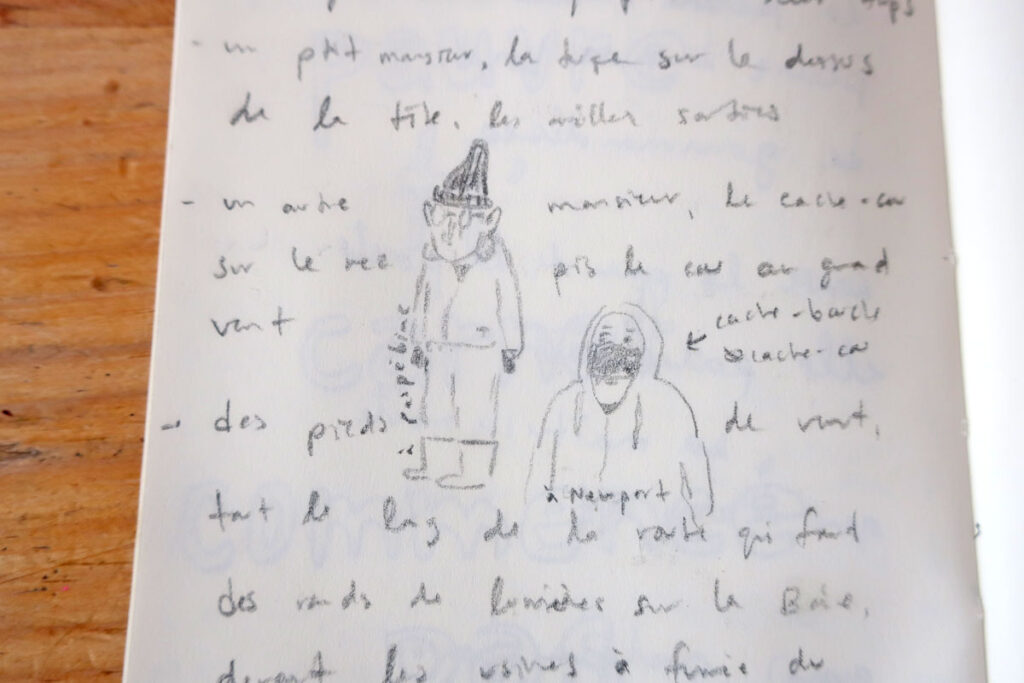 - un ptit monsieur, la tuque sur le dessus
de la tête, les oreilles sorties
- un autre monsieur, le cache-cou
sur le nez pis le cou au grand
vent
cache-barbe
cache-cou
à Paspébiac
- des pieds de vent,
tout le long de la route qui font
à Newport
des ronds de lumières sur la Baie,
devant les usines à fumée du